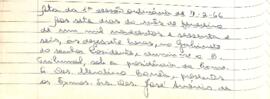 Ata da 1ª sessão ordinária de 7-2-66
Aos sete dias do mês de fevereiro
de um mil novecentos e sessenta e
seis, às dezesseis horas, no Gabinete
do senhor Presidente, reuniu-se o
Tribunal, sob a presidência do Exmo.
Des. presentes
os Exmos. Srs. Des. José Antônio de